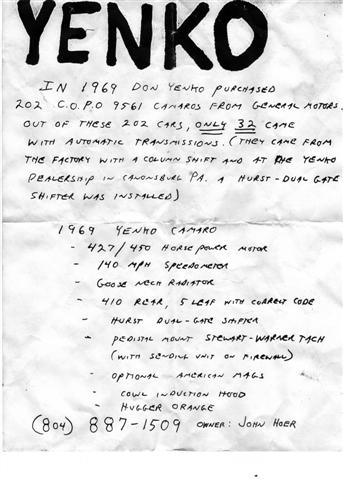 YENKO
IN 1969 DON YENKO PURCHASED
202 C.O.P.O 9561 CAMAROS FROM GENERAL MOTORS.
OUT OF THESE 202 CARS, ONLY 32 CAME
WITH AUTOMATIC TRANSMISSIONS. (THEY CAME FROM
THE FACTORY WITH A COLUMN SHIFT AND AT THE YENKO
DEALERSHIP IN CANONSBURG PA. A HURST-DUAL GATE
SHIFTER WAS INSTALLED)
1969 YENKO CAMARO
- 427/450 HORSE POWER MOTOR
- 140 MPH SPEEDOMETER
- GOOSE NECK RADIATOR
- 410 REAR, 5 LEAF WITH CORRECT CODE
- HURST DUAL-GATE SHIFTER
- PEDISTAL MOUNT STEWART-WARNER TACH
(WITH SENDING UNIT ON FIREWALL)
- OPTIONAL AMERICAN MAGS
- COWL INDUCTION HOOD
- HUGGER ORANGE
(804) 887-1509 OWNER: JOHN HOER